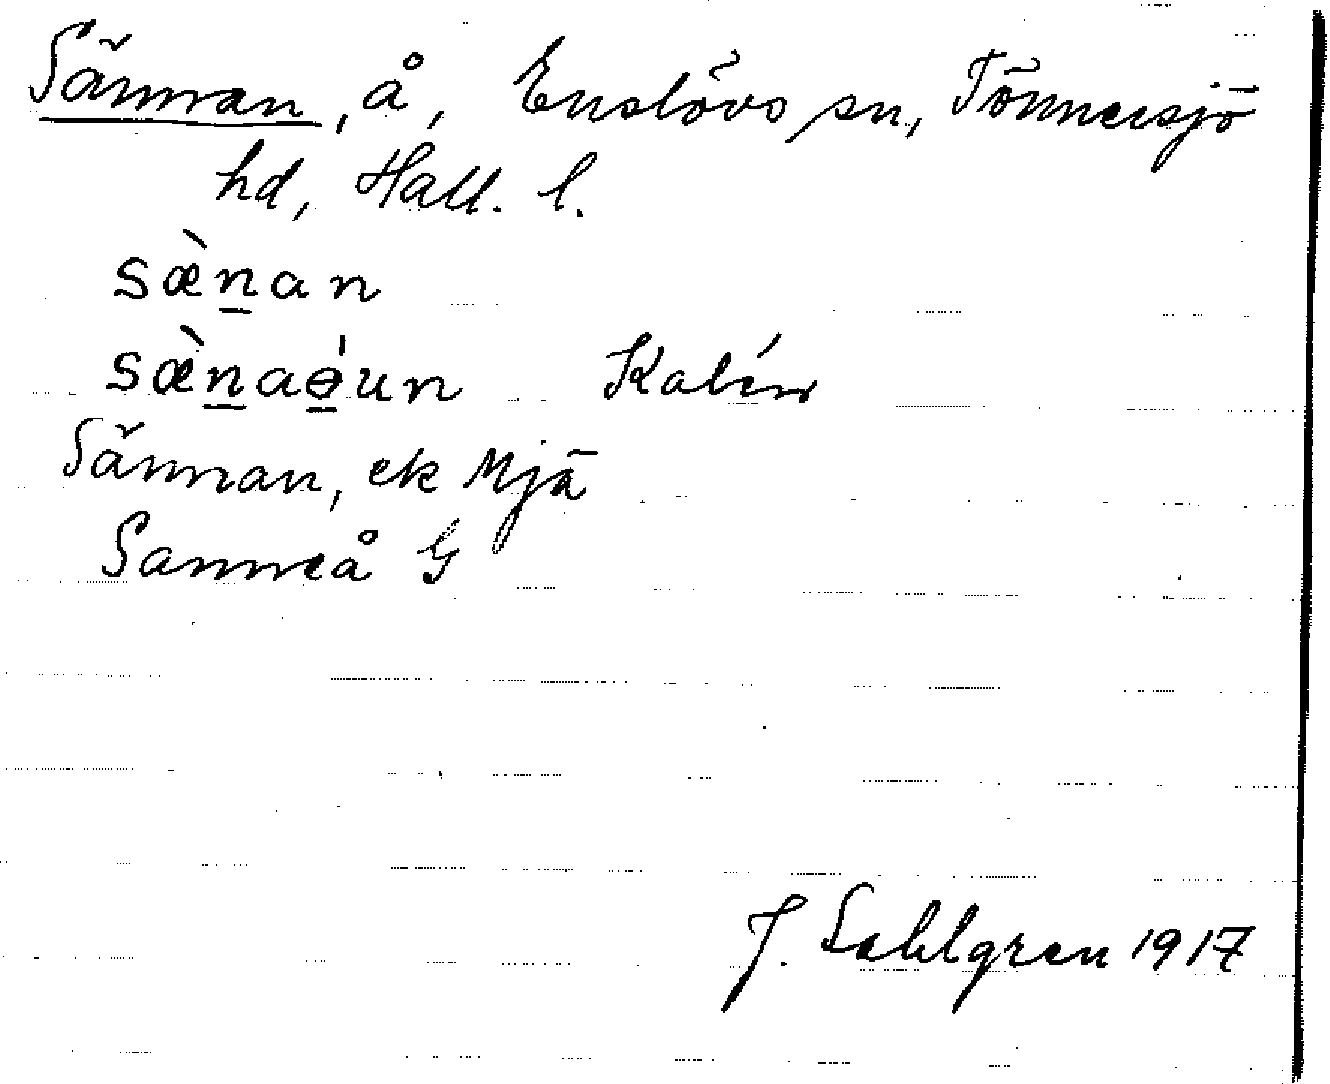 Sännan, å, Enslövs sn, Tönnersjö
hd, Hall. l.
sæ̀n̲an
sæ̀n̲aə̲́un Kalén
Sännan, ek Mjä
Sanneå G
J. Sahlgren 1917